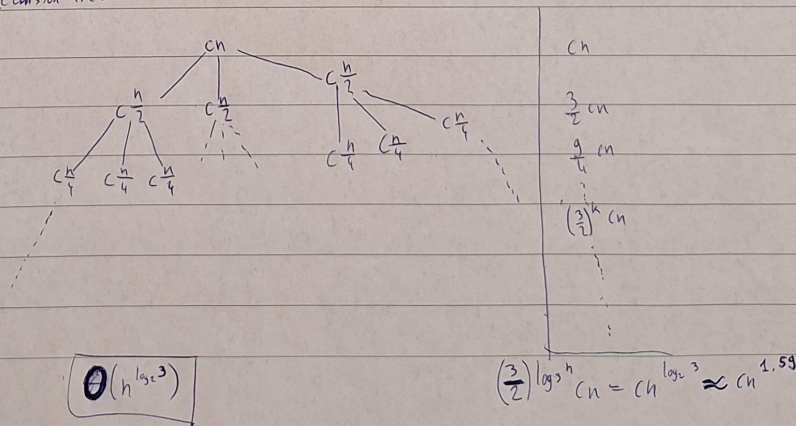 cn
cn
c n/2 c n/2 c n/2
3/2 cn
c n/4 c n/4 c n/4 c n/4 c n/4 c n/4
9/4 cn
(3/2)^k cn
Θ(n^log₂3)
(3/2)^log₃n cn = cn^log₂3 ≈ cn^1.59